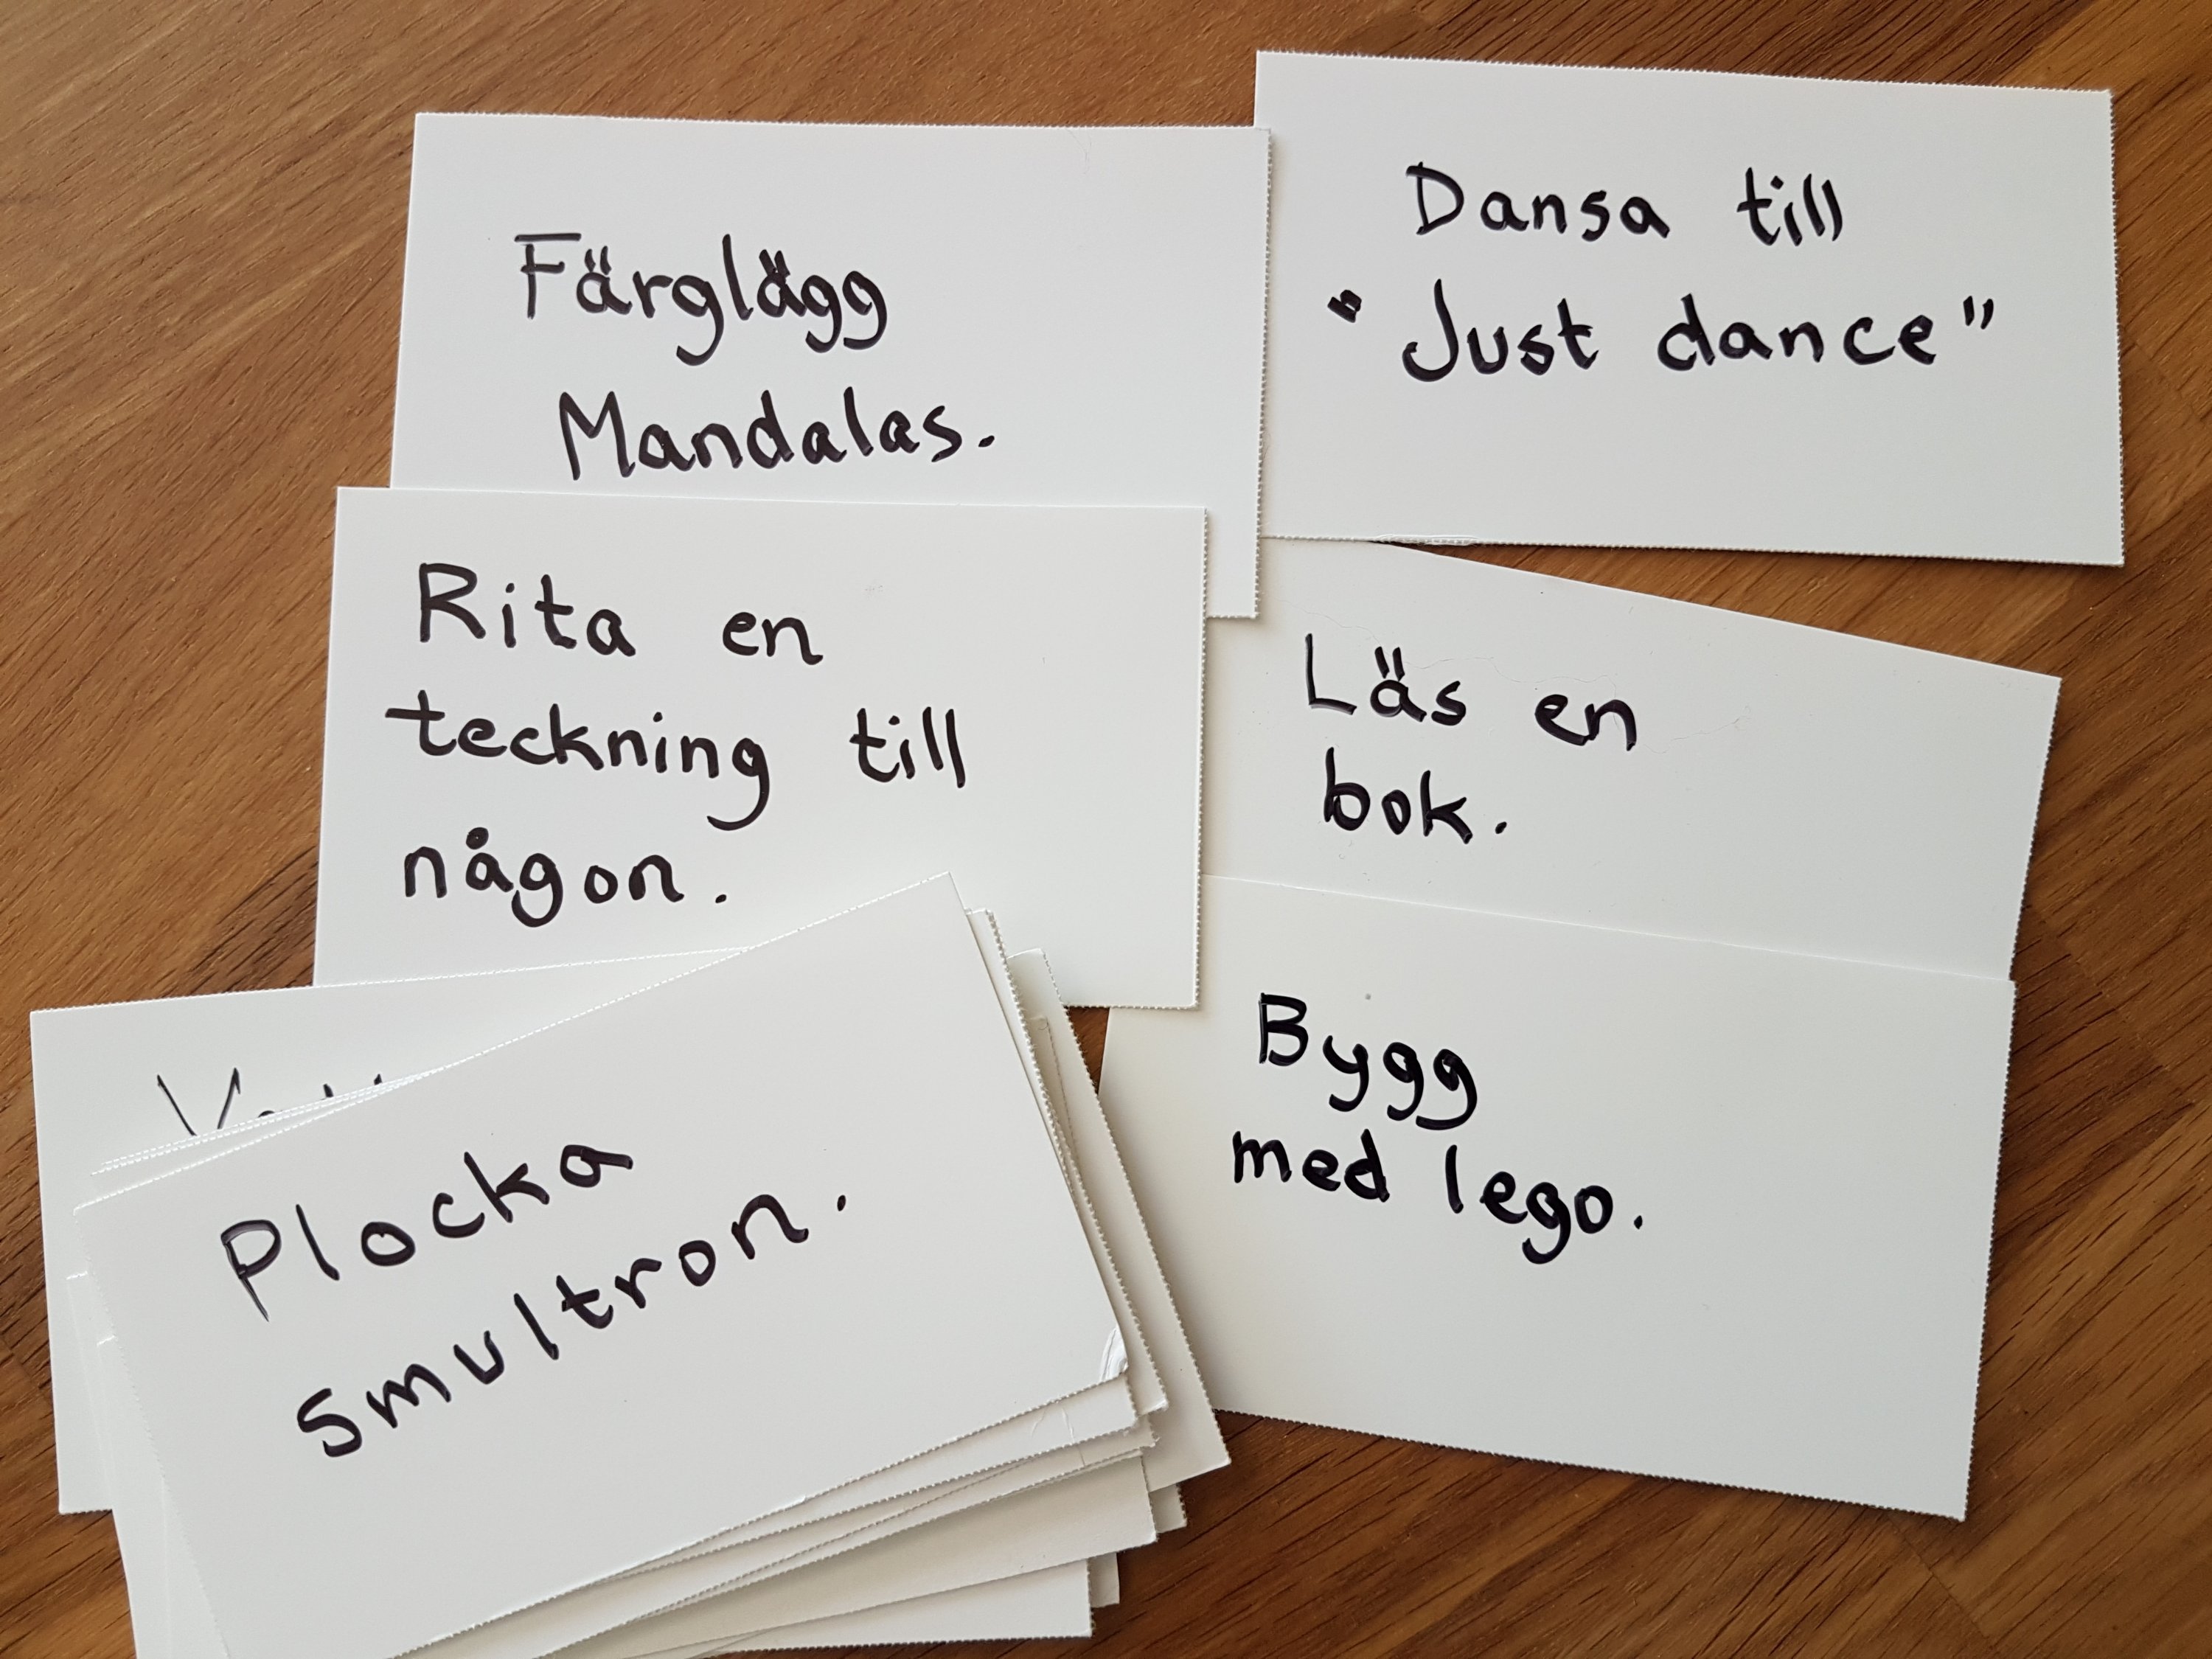 Färglägg
Mandalas.
Dansa till
"Just dance"
Rita en
teckning till
någon.
Läs en
bok.
Bygg
med lego.
Plocka
smultron.